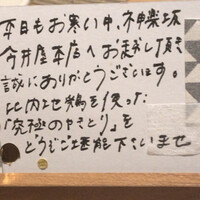 本日もお寒い中、神楽坂
今井屋本店へお越し頂き
誠にありがとうございます。
比内地鶏を使った
「究極のやきとり」を
どうぞご堪能下さいませ